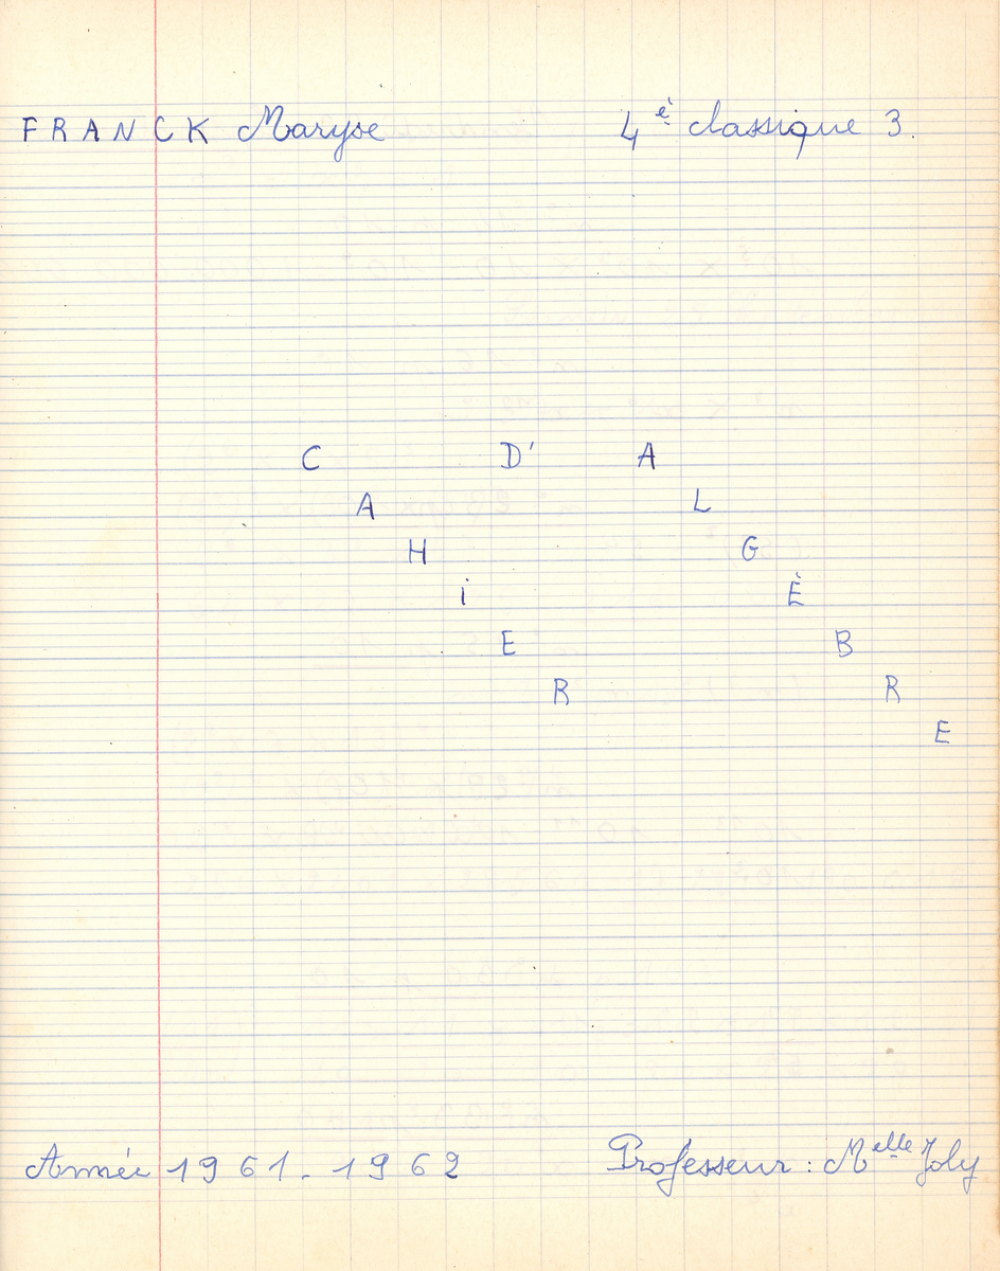 FRANCK Maryse 4è classique 3.
CAHiER D'ALGÈBRE
Année 1961-1962 Professeur : Melle Joly